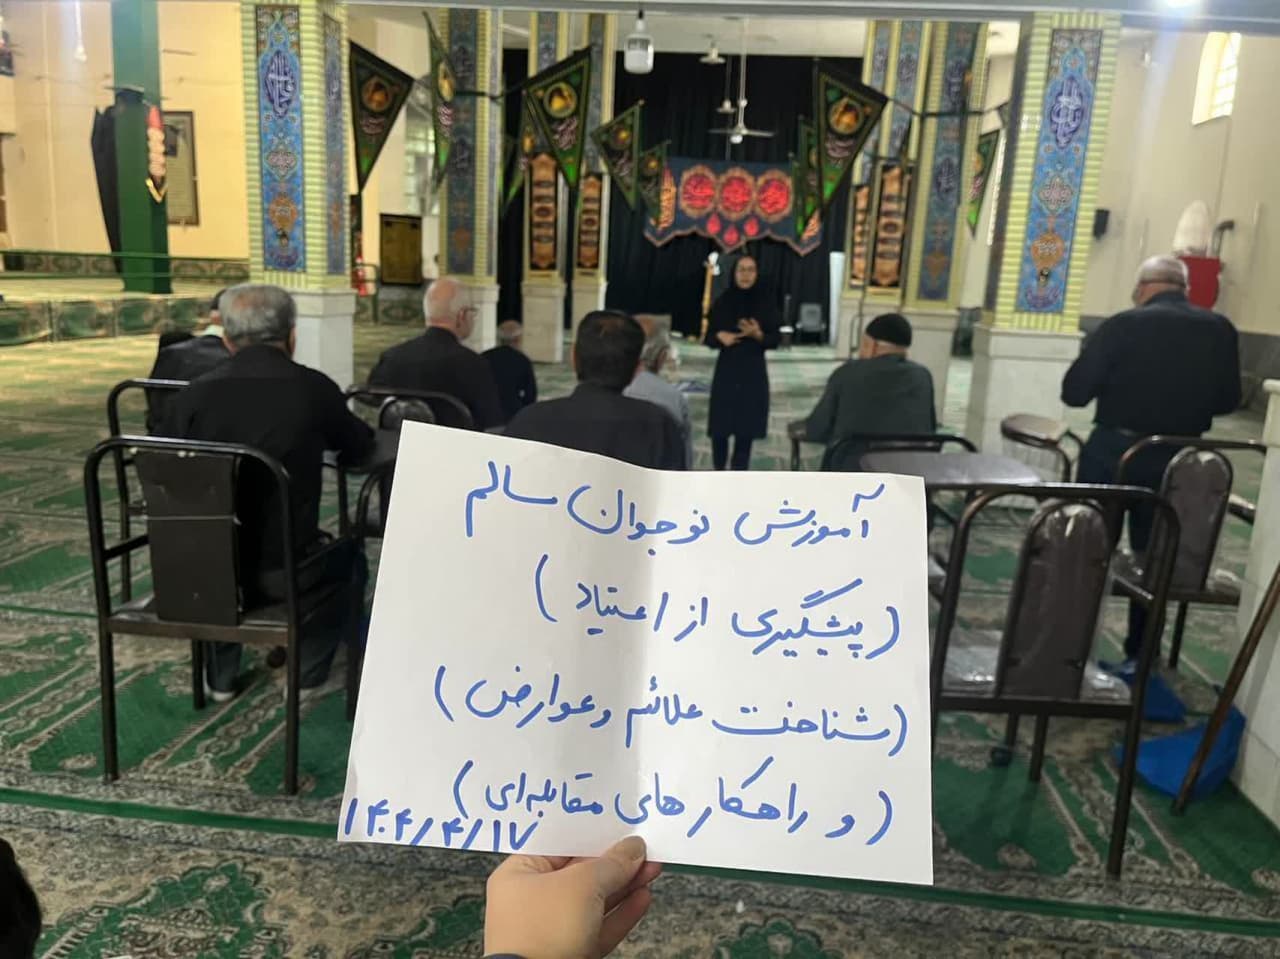 آموزش نوجوان سالم
(پیشگیری از اعتیاد)
(شناخت علائم و عوارض)
(و راهکارهای مقابله‌ای)
۱۴۰۴/۴/۱۷